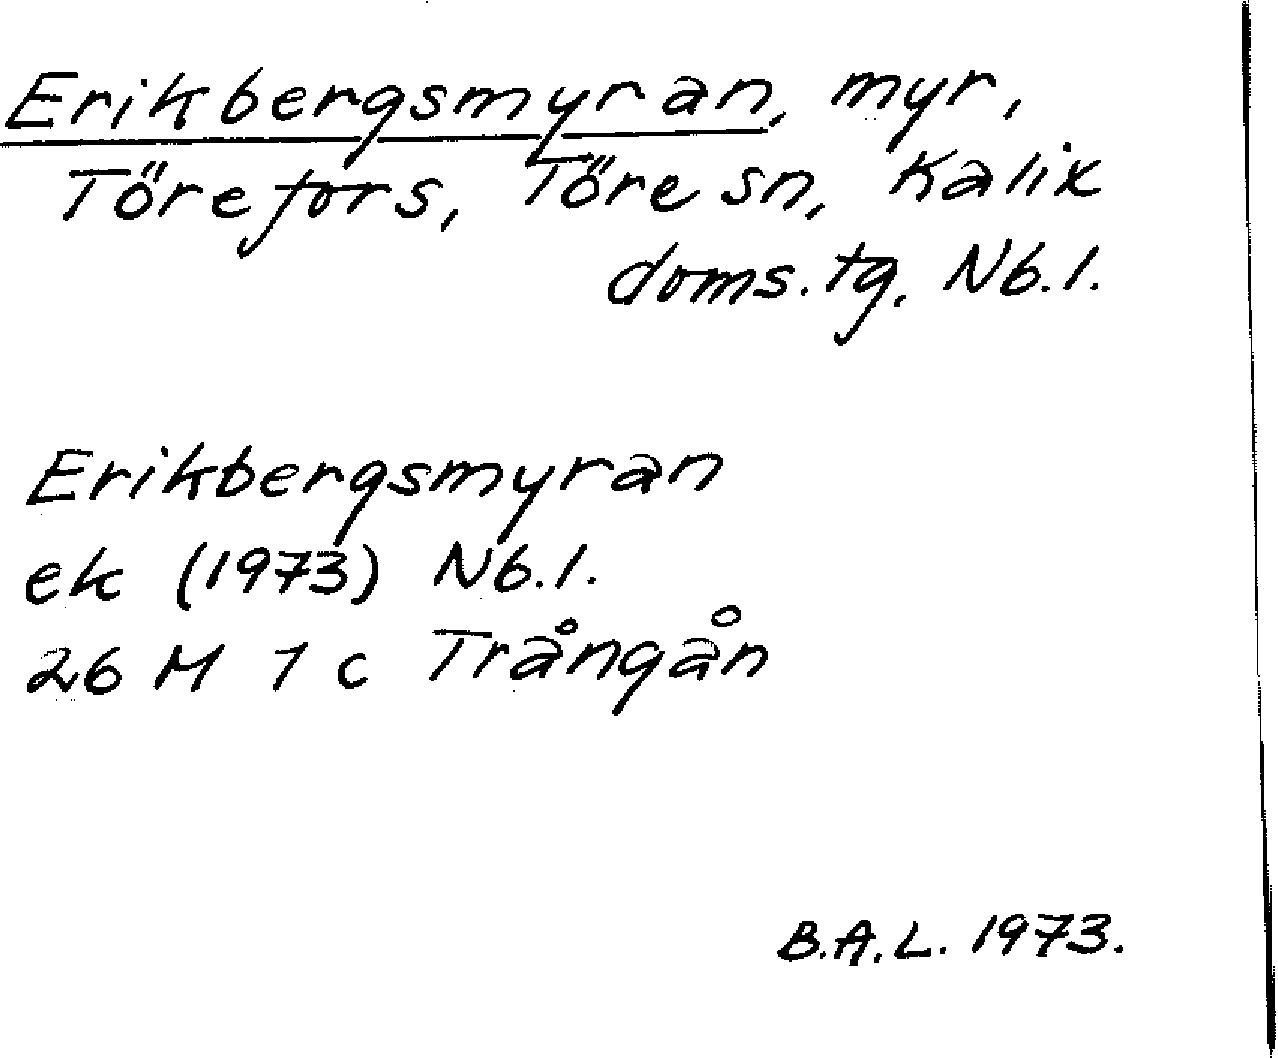 Erikbergsmyran, myr,
Törefors, Töre sn, Kalix
doms.tg, Nb.l.
Erikbergsmyran
ek (1973) Nb.l.
26 M 1 c Trångån
B.A.L. 1973.